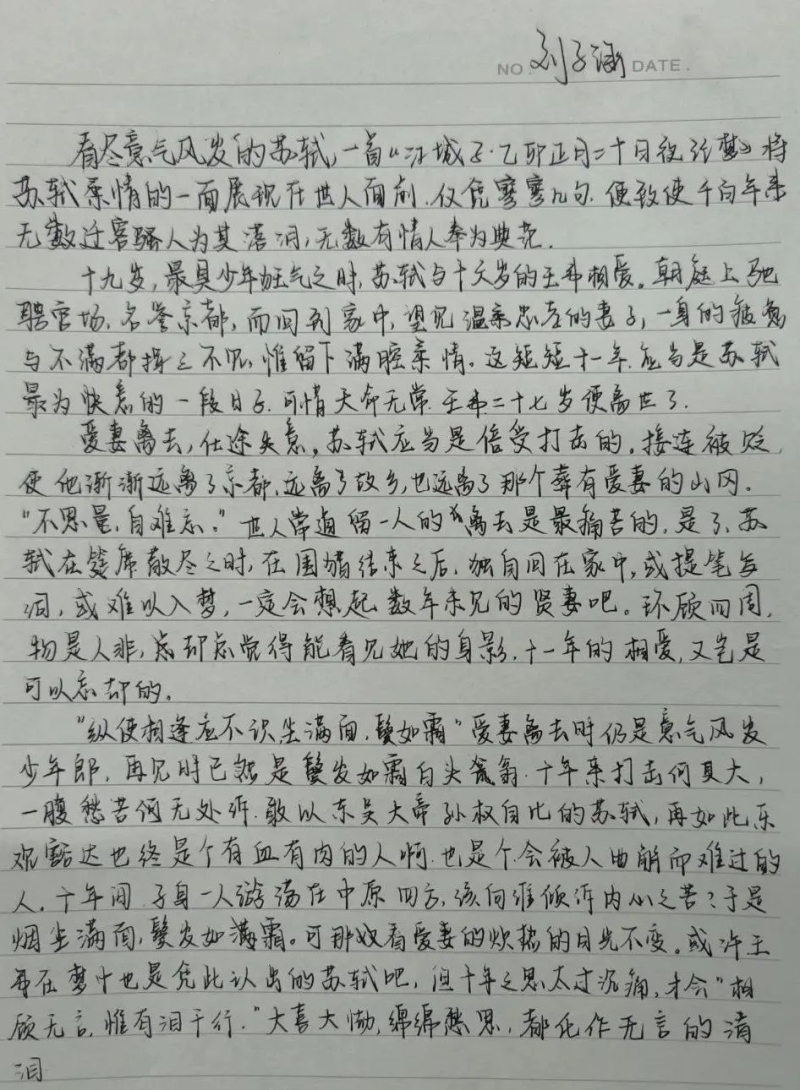 NO. 刘子涵 DATE.
看尽意气风发的苏轼,一首《江城子·乙卯正月二十日夜记梦》将
苏轼柔情的一面展现在世人面前.仅凭寥寥几句.便致使千百年来
无数迁客骚人为其落泪,无数有情人奉为典范.
十九岁,最具少年狂气之时,苏轼与十六岁的王弗相爱。朝庭上驰
骋官场,名誉京都,而回到家中,望见温柔忠庄的妻子,一身的疲惫
与不满都挥之不见.惟留下满腔柔情。这短短十一年.应当是苏轼
最为快意的一段日子.可惜天命无常.王弗二十七岁便离世了.
爱妻离去,仕途失意,苏轼应当是倍受打击的,接连被贬,
使他渐渐远离了京都,远离了故乡,也远离了那个葬有爱妻的山冈.
"不思量,自难忘."世人常道留一人的离去是最痛苦的,是了,苏
轼在筵席散尽之时,在围猎结束之后.独自回在家中,或提笔写
词,或难以入梦,一定会想起数年未见的贤妻吧。环顾四周,
物是人非,恍却恍觉得能看见她的身影.十一年的相爱,又岂是
可以忘却的。
"纵使相逢应不识尘满面,鬓如霜"爱妻离去时仍是意气风发
少年郎,再见时已然是鬓发如霜白头翁.十年来打击何其大,
一腹愁苦何无处诉.敢以东吴大帝孙权自比的苏轼,再如此乐
观豁达也终是个有血有肉的人啊.也是个会被人曲解而难过的
人.十年间.孑身一人游荡在中原四方,该向谁倾诉内心之苦?于是
烟尘满面,鬓发如满霜。可那双看爱妻的炽热的目光不变。或许王
弗在梦中也是凭此认出的苏轼吧,但十年之思太过沉痛,才会"相
顾无言,惟有泪千行."大喜大恸,绵绵愁思,都化作无言的清
泪